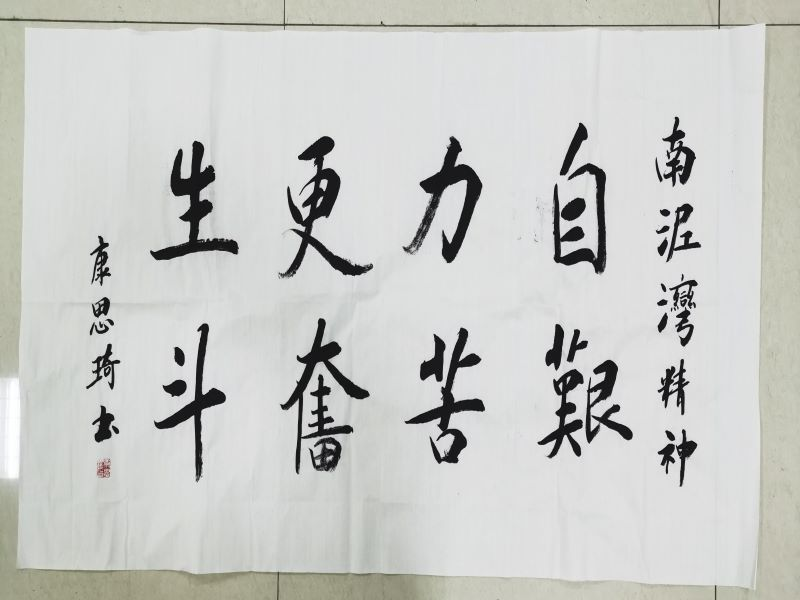 南泥灣精神
自力更生
艱苦奮斗
康思琦书